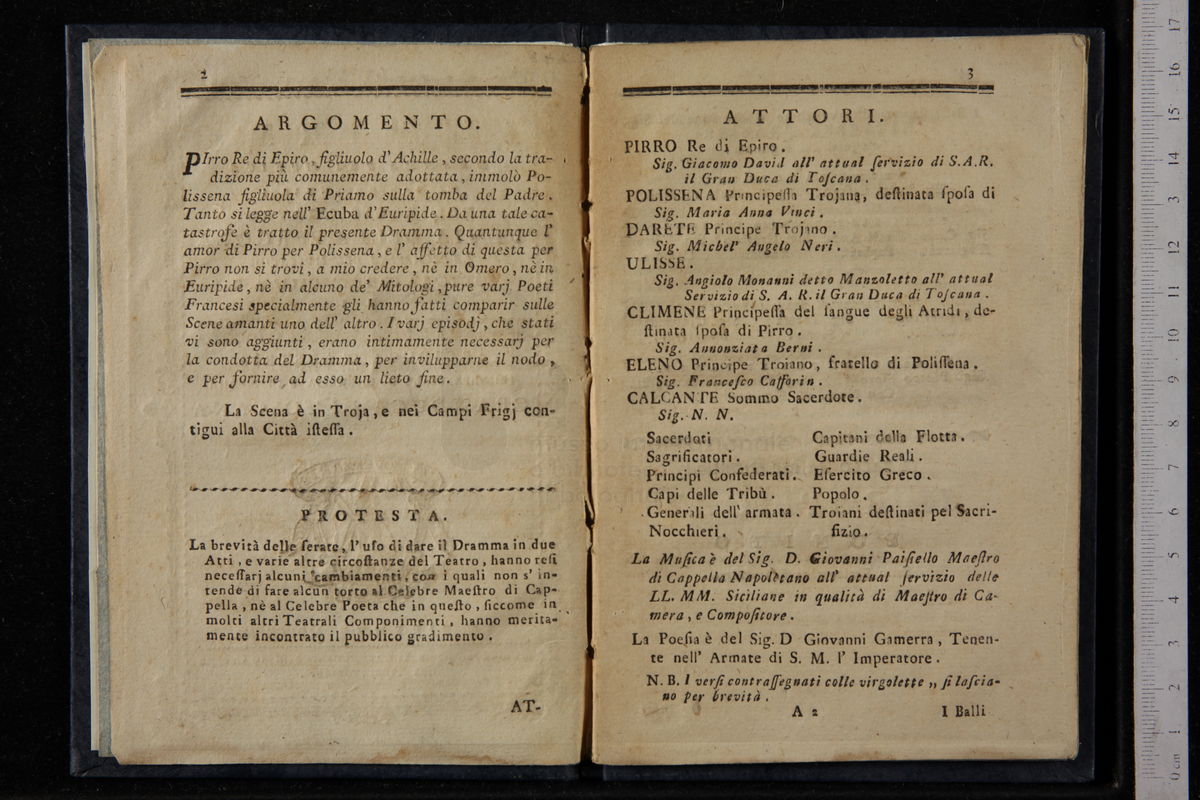 2
ARGOMENTO.
PIrro Re di Epiro, figliuolo d' Achille, secondo la tra-
dizione più comunemente adottata, immolò Po-
lissena figliuola di Priamo sulla tomba del Padre.
Tanto si legge nell' Ecuba d' Euripide. Da una tale ca-
tastrofe è tratto il presente Dramma. Quantunque l'
amor di Pirro per Polissena, e l' affetto di questa per
Pirro non si trovi, a mio credere, nè in Omero, nè in
Euripide, nè in alcuno de' Mitologi, pure varj Poeti
Francesi specialmente gli hanno fatti comparir sulle
Scene amanti uno dell' altro. I varj episodj, che stati
vi sono aggiunti, erano intimamente necessarj per
la condotta del Dramma, per invilupparne il nodo,
e per fornire ad esso un lieto fine.
La Scena è in Troja, e nei Campi Frigj con-
tigui alla Città iſteſſa.
PROTESTA.
La brevità delle ſerate, l' uſo di dare il Dramma in due
Atti, e varie altre circoſtanze del Teatro, hanno reſi
neceſſarj alcuni cambiamenti, con i quali non s' in-
tende di fare alcun torto al Celebre Maeſtro di Cap-
pella, nè al Celebre Poeta che in queſto, ſiccome in
molti altri Teatrali Componimenti, hanno merita-
mente incontrato il pubblico gradimento.
AT-
3
ATTORI.
PIRRO Re di Epiro.
Sig. Giacomo David all' attual ſervizio di S. A. R.
il Gran Duca di Toſcana.
POLISSENA Principeſſa Trojana, deſtinata ſpoſa di
Sig. Maria Anna Vinci.
DARETE Principe Trojano.
Sig. Michel' Angelo Neri.
ULISSE.
Sig. Angiolo Monanni detto Manzoletto all' attual
Servizio di S. A. R. il Gran Duca di Toſcana.
CLIMENE Principeſſa del ſangue degli Atridi, de-
ſtinata ſpoſa di Pirro.
Sig. Annonziata Berni.
ELENO Principe Troiano, fratello di Poliſſena.
Sig. Franceſco Caſſorin.
CALCANTE Sommo Sacerdote.
Sig. N. N.
Sacerdoti
Sagrificatori.
Principi Confederati.
Capi delle Tribù.
Generali dell' armata.
Nocchieri.
Capitani della Flotta.
Guardie Reali.
Eſercito Greco.
Popolo.
Troiani deſtinati pel Sacri-
fizio.
La Muſica è del Sig. D. Giovanni Paiſiello Maeſtro
di Cappella Napoletano all' attual ſervizio delle
LL. MM. Siciliane in qualità di Maeſtro di Ca-
mera, e Compoſitore.
La Poeſia è del Sig. D Giovanni Gamerra, Tenen-
te nell' Armate di S. M. l' Imperatore.
N. B. I verſi contraſſegnati colle virgolette „ ſi laſcia-
no per brevità.
A 2
I Balli
0 cm 1 2 3 4 5 6 7 8 9 10 11 12 13 14 15 16 17